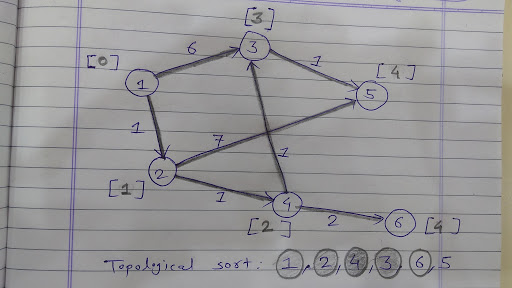 [3]
6
3
1
[0]
[4]
1
5
1
7
2
1
[1]
1
4
2
6
[2]
[4]
Topological sort: 1, 2, 4, 3, 6, 5